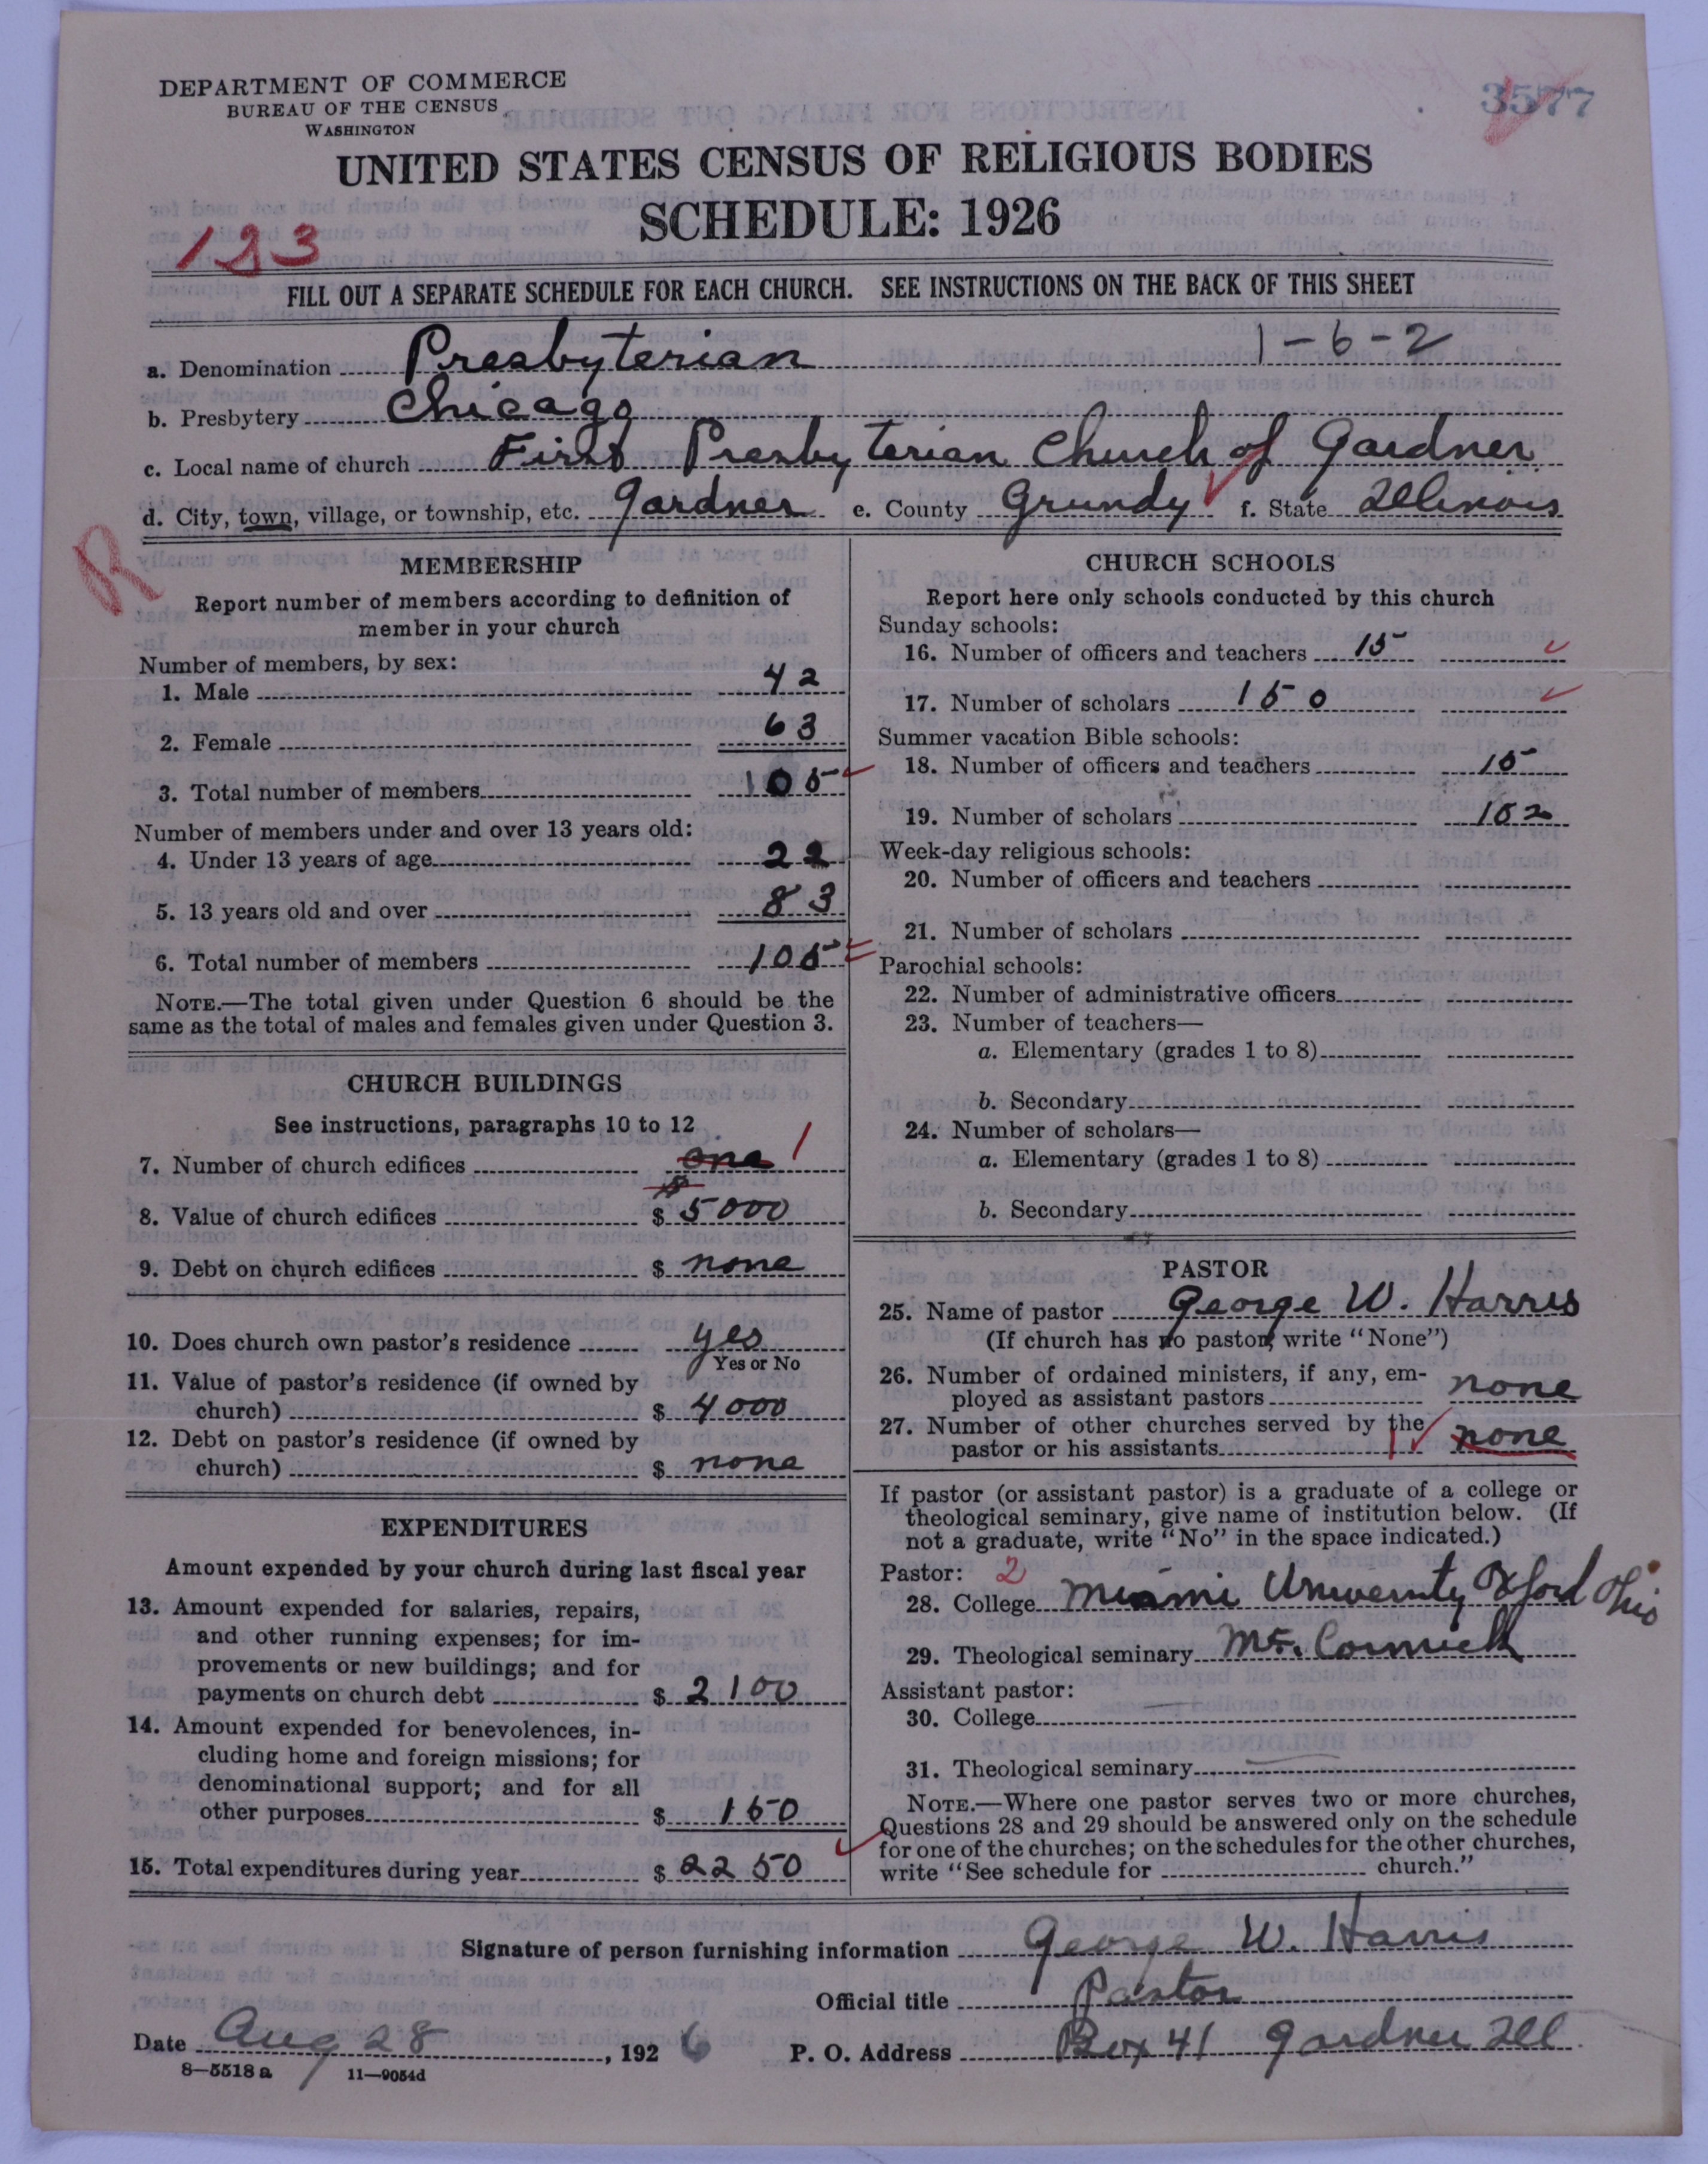 DEPARTMENT OF COMMERCE
BUREAU OF THE CENSUS
WASHINGTON
3577
UNITED STATES CENSUS OF RELIGIOUS BODIES
SCHEDULE: 1926
123
FILL OUT A SEPARATE SCHEDULE FOR EACH CHURCH. SEE INSTRUCTIONS ON THE BACK OF THIS SHEET
a. Denomination Presbyterian 1-6-2
b. Presbytery Chicago
c. Local name of church First Presbyterian Church of Gardner
d. City, town, village, or township, etc. Gardner e. County Grundy f. State Illinois
R
MEMBERSHIP
Report number of members according to definition of
member in your church
Number of members, by sex:
1. Male 42
2. Female 63
3. Total number of members 105
Number of members under and over 13 years old:
4. Under 13 years of age 22
5. 13 years old and over 83
6. Total number of members 105
NOTE.—The total given under Question 6 should be the
same as the total of males and females given under Question 3.
CHURCH BUILDINGS
See instructions, paragraphs 10 to 12
7. Number of church edifices one 1
8. Value of church edifices $ 5000
9. Debt on church edifices $ none
10. Does church own pastor's residence yes
Yes or No
11. Value of pastor's residence (if owned by
church) $ 4000
12. Debt on pastor's residence (if owned by
church) $ none
EXPENDITURES
Amount expended by your church during last fiscal year
13. Amount expended for salaries, repairs,
and other running expenses; for im-
provements or new buildings; and for
payments on church debt $ 2100
14. Amount expended for benevolences, in-
cluding home and foreign missions; for
denominational support; and for all
other purposes $ 150
15. Total expenditures during year $ 2250
CHURCH SCHOOLS
Report here only schools conducted by this church
Sunday schools:
16. Number of officers and teachers 15
17. Number of scholars 150
Summer vacation Bible schools:
18. Number of officers and teachers 15
19. Number of scholars 102
Week-day religious schools:
20. Number of officers and teachers
21. Number of scholars
Parochial schools:
22. Number of administrative officers
23. Number of teachers—
a. Elementary (grades 1 to 8)
b. Secondary
24. Number of scholars—
a. Elementary (grades 1 to 8)
b. Secondary
PASTOR
25. Name of pastor George W. Harris
(If church has no pastor, write "None")
26. Number of ordained ministers, if any, em-
ployed as assistant pastors none
27. Number of other churches served by the
pastor or his assistants none
If pastor (or assistant pastor) is a graduate of a college or
theological seminary, give name of institution below. (If
not a graduate, write "No" in the space indicated.)
Pastor: 2
28. College Miami University Oxford Ohio
29. Theological seminary Mc. Cormick
Assistant pastor:
30. College
31. Theological seminary
NOTE.—Where one pastor serves two or more churches,
Questions 28 and 29 should be answered only on the schedule
for one of the churches; on the schedules for the other churches,
write "See schedule for church."
Signature of person furnishing information George W. Harris
Official title Pastor
Date Aug 28, 1926 P. O. Address Box 41 Gardner Ill
8—5518 a 11—9054d